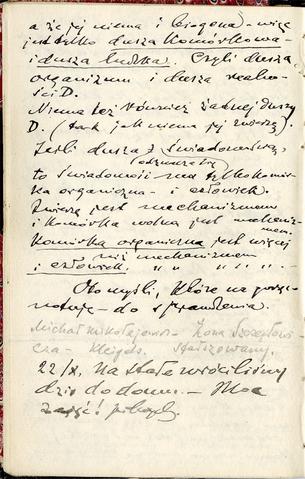 a że jej niema i biegona - więc
jest tylko dusza Komórkowa -
i dusza ludzka. Czyli dusza
organizmu i dusza
ści D.
Niema też również żadnej duszy
D. (tak jak niema jej zwierzę).
Jeśli dusza z świadomością,
to świadomość ma tylko komór-
ka organiczna - i człowiek.
Zwierzę jest mechanizmem
i Komórka wolna jest mechaniz-
mem.
Komórka organiczna jest więcej
niż mechanizmem
i człowiek. " " " " -
Oto myśli, które na
notuję - do sprawdzenia.
Michał Mikołajewicz - Żona
cza -
22/X. Na stałe wróciliśmy
dziś do domu. - Moc
zajęć!